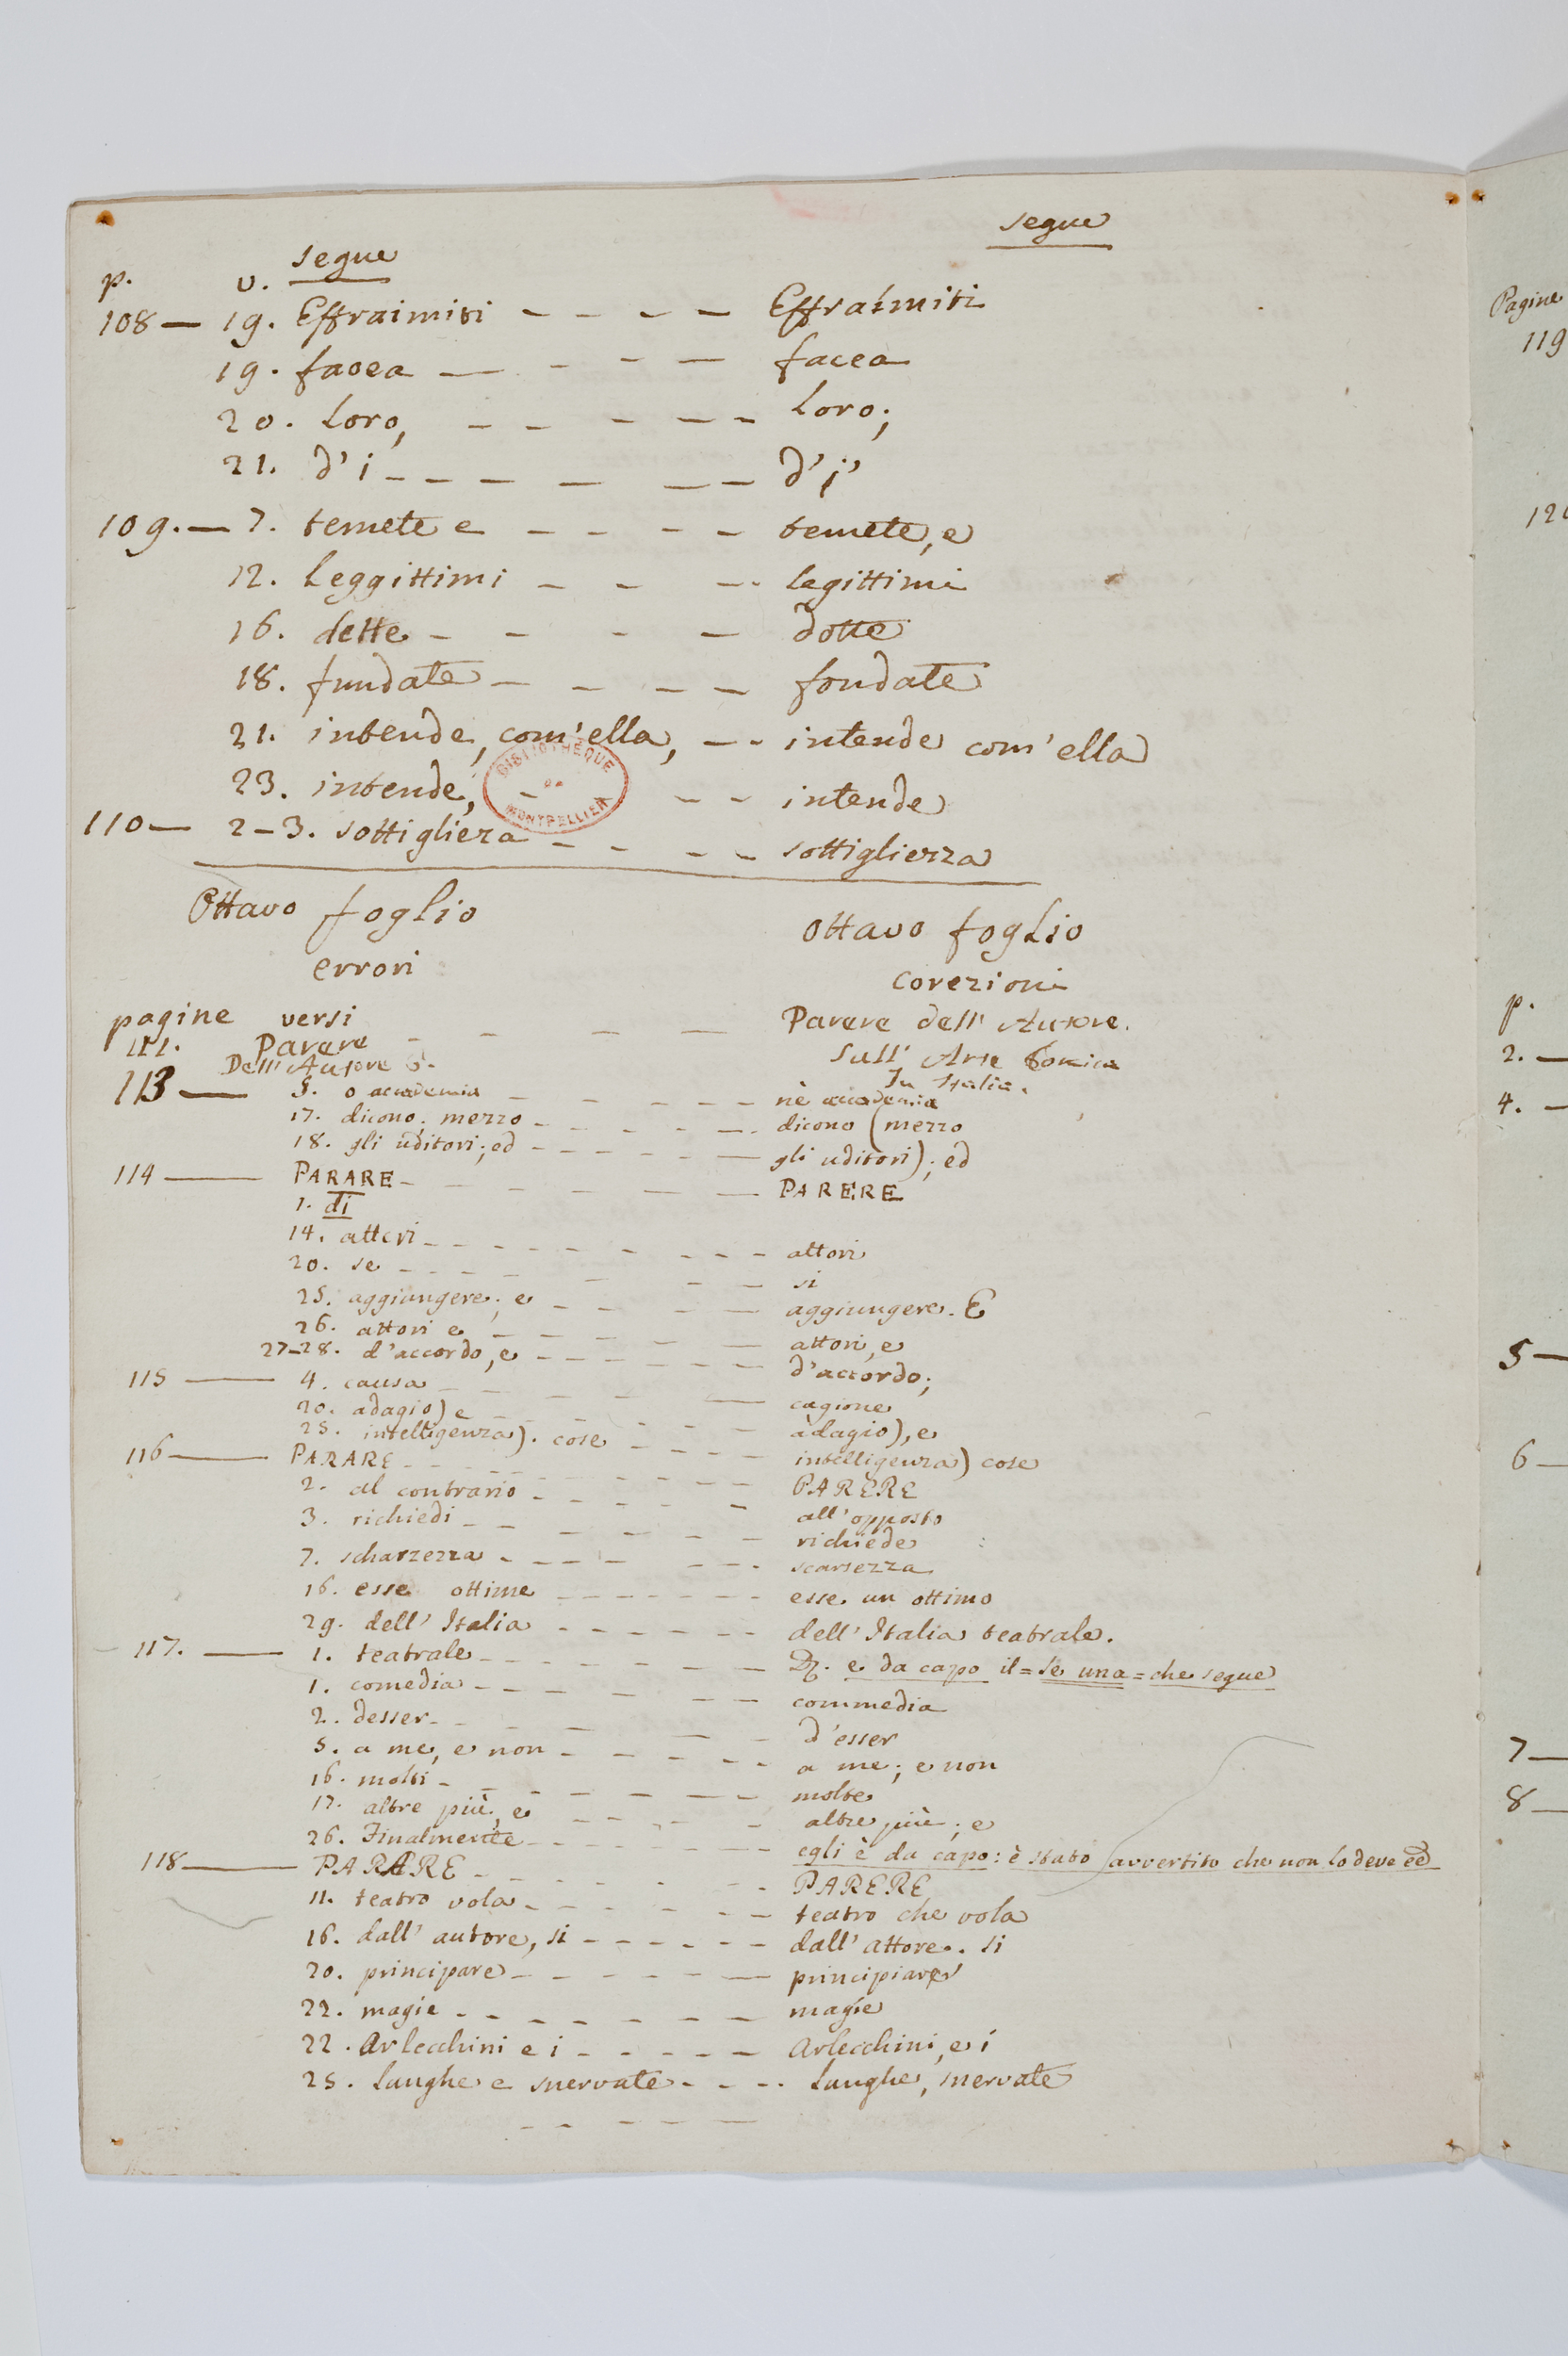 segue
segue
p. v.
108 — 19. Effraimiti - - - — Effraímiti
19. facea — - - — facea
20. loro, - - - - - loro;
21. d' i - - - - — - d' i'
109. — 7. temete e - - - - temete, e
12. leggittimi - - - - legittimi
16. dette - - - - dotte
18. fundate - - - - fondate
21. intende, com' ella, - - intende com' ella
23. intende, - - - intende
BIBLIOTHEQUE DE MONTPELLIER
110 — 2-3. sottigliera - - - - sottigliezza
Ottavo foglio ottavo foglio
errori corezioni
pagine versi
111. Parere - - - — Parere dell' Autore.
Dell' Autore S. Sull' Arte Comica
In Italia.
113 — 5. o accademia - - - - - nè accademia
17. dicono; mezzo - - - - - dicono (mezzo
18. gli uditori; ed - - - - - gli uditori); ed
114 — PARARE - - - - - PARERE
1. di
14. atteri - - - - - - attori
20. se - - - - - si
25. aggiungere; e - - - - aggiungere. E
26. attori e - - - - attori, e
27-28. d'accordo, e - - - - - d'accordo;
115 — 4. causa - - - - cagione
20. adagio) e - - - - adagio), e
25. intelligenza). cose - - - - intelligenza) cose
116 — PARARE - - - - - PARERE
2. al contrario - - - - all' opposto
3. richiedi - - - - - richiede
7. scharzezza - - - - - - scarsezza
16. esse ottime - - - - - - esse un ottimo
29. dell' Italia - - - - - - dell' Italia teatrale.
117. — 1. teatrale - - - - - - e da capo il = se una = che segue
1. comedia - - - - - commedia
2. desser - - - - - d'esser
5. a me, e non - - - - - a me; e non
16. molti - - - - - - molte
17. altre più, e - - - - altre più; e
26. Finalmente - - - - - egli è da capo: è stato avvertito che non lo deve
118 — PARARE - - - - - PARERE
11. teatro vola - - - - - - teatro che vola
16. dall' autore, si - - - - - - dall' attore. si
20. principare - - - - - - principiare
22. magie - - - - - - - magíe
22. Arlecchini e i - - - - - Arlecchini, e i
25. lunghe e snervate - - - - lunghe, snervate
- - - - -
Pagine
119
p.
2. —
4. —
5 —
6 —
7 —
8 —